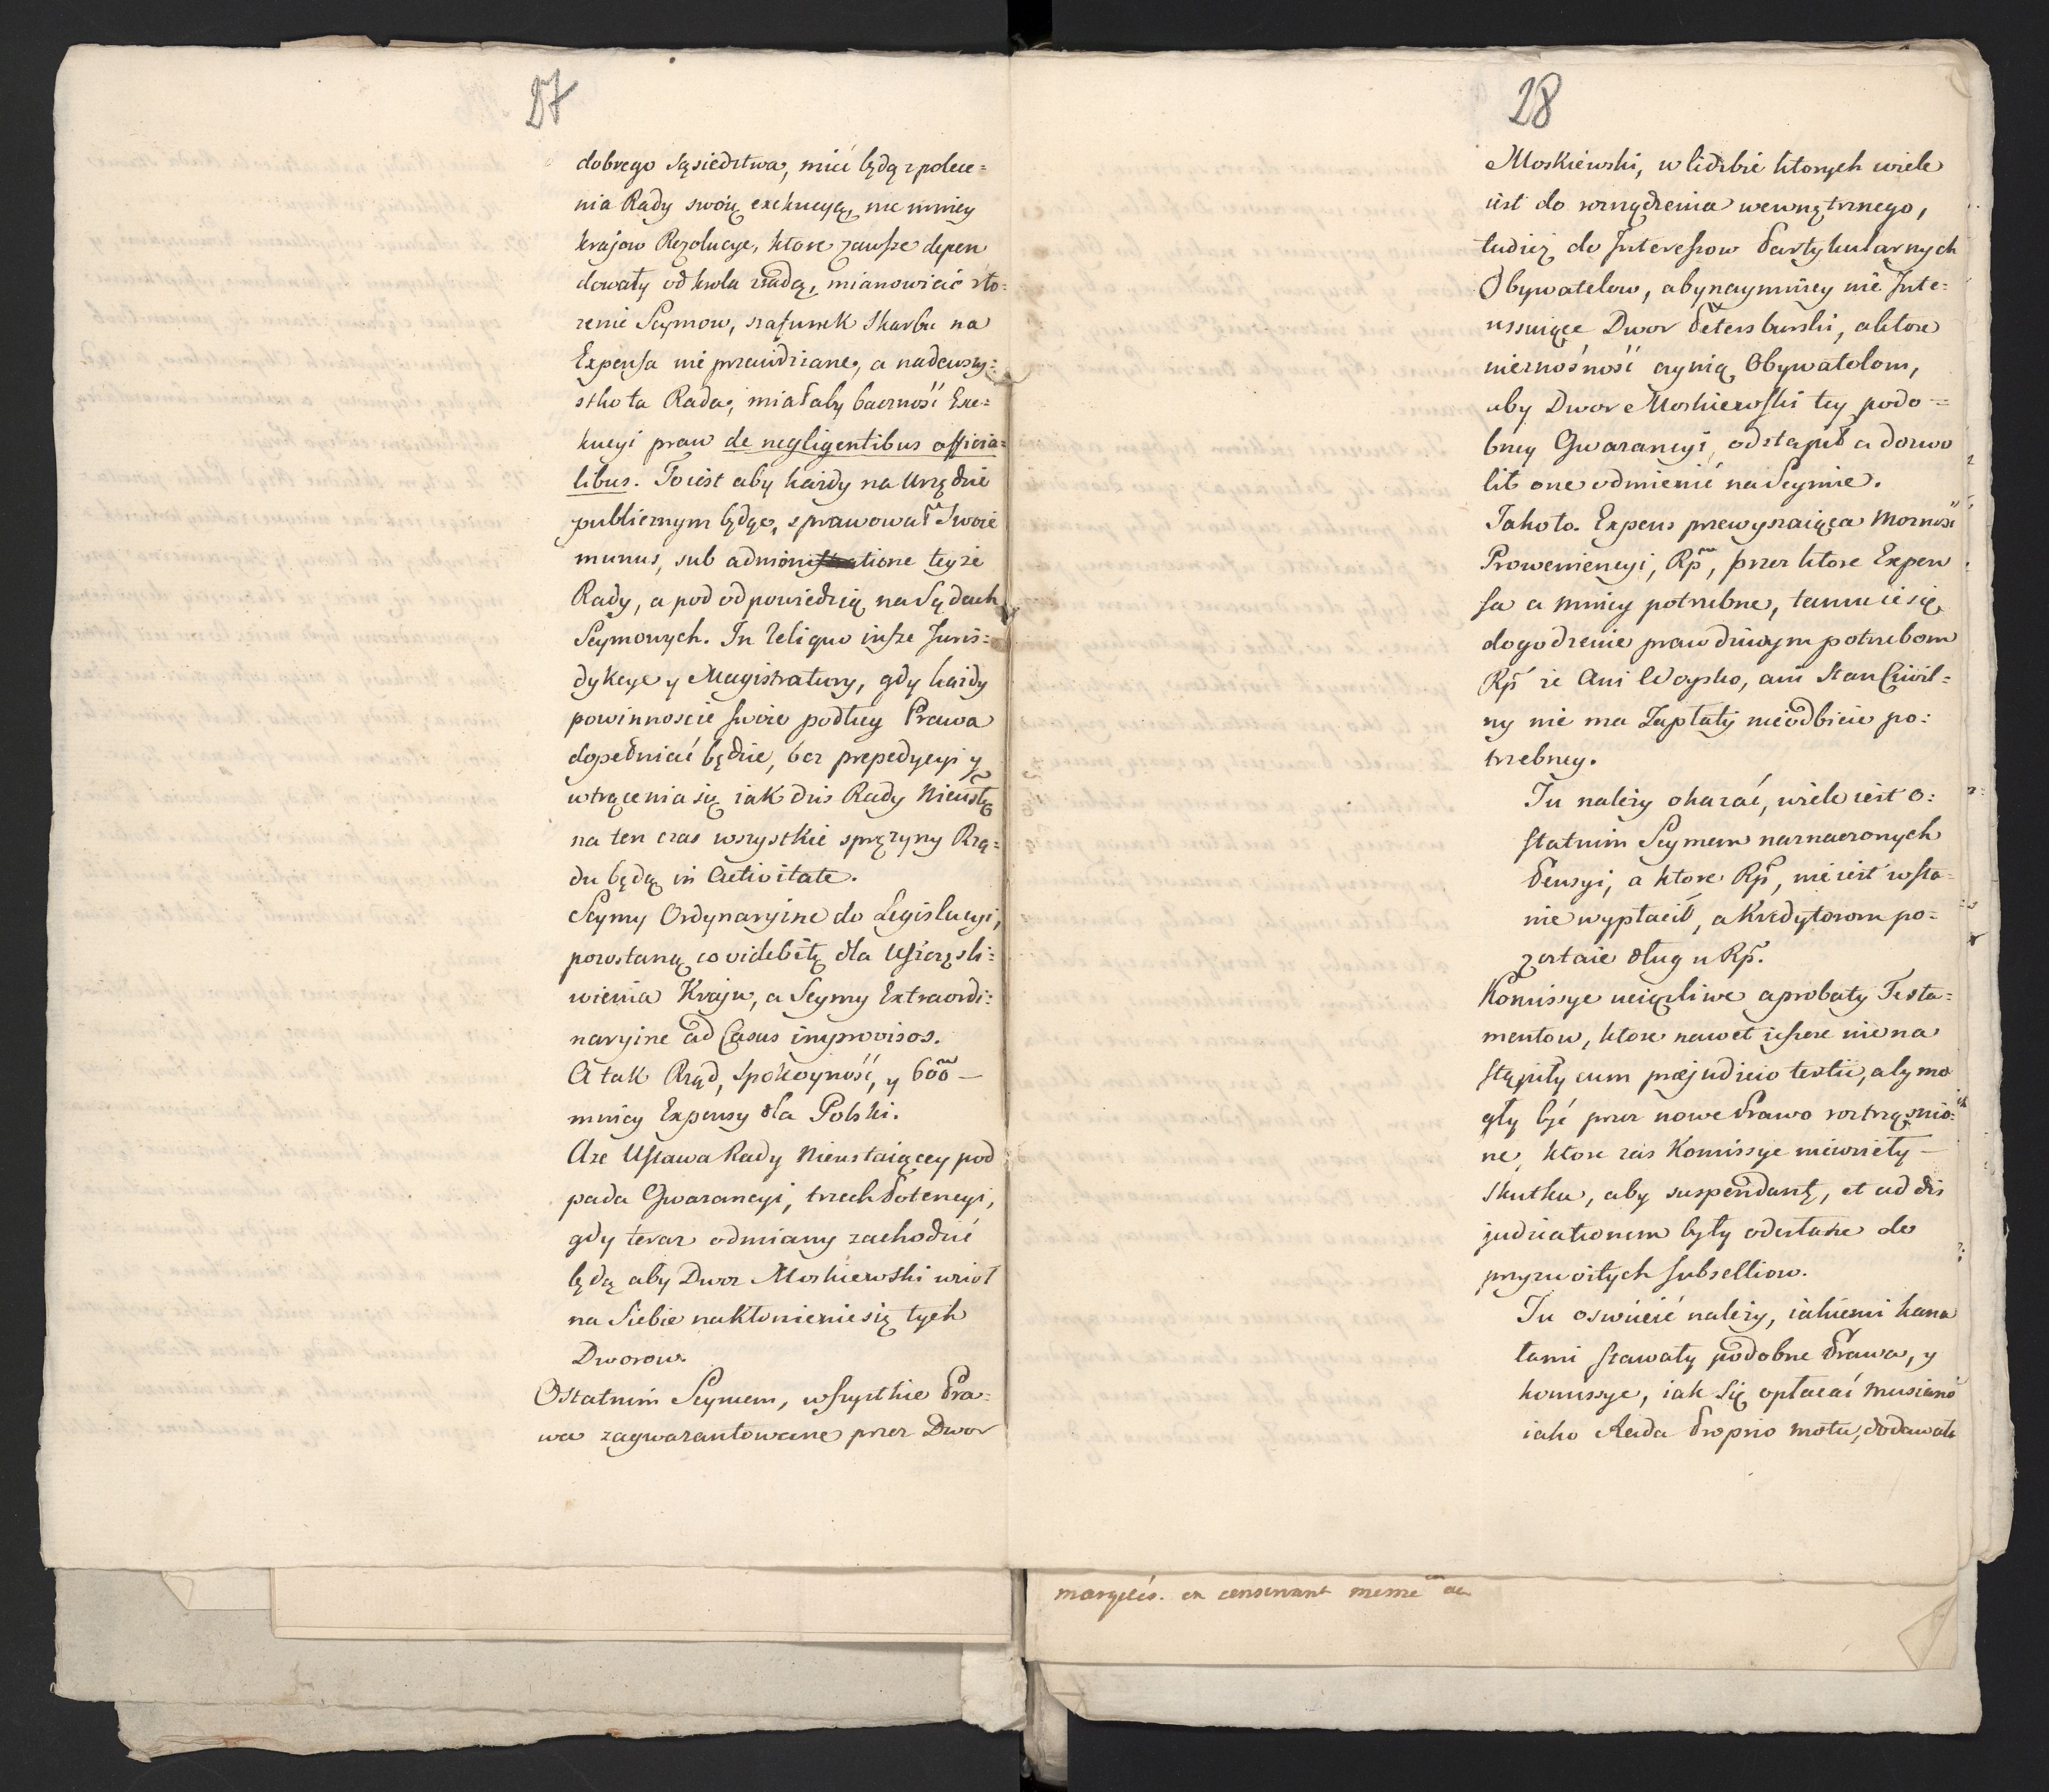 27
dobrego sąsiedztwa, mieć będą z polece=
nia Rady swoię exekucyą, nie mniey
krajow Rezolucye, ktore zawsze depen
dowały od krola z radą, mianowicie zło=
zenie Seymow, szafunek Skarbu na
Expensa nie przewidziane, a nadewszy=
stko ta Rada, miałaby baczność Exe=
kucyi praw de negligentibus officia=
libus. To iest aby każdy na Urzędzie
publicznym będąc, sprawował Swoie
munus, sub admonitione teyże
Rady, a pod odpowiedzią na Sądach
Seymowych. In Reliquo insze Juris=
dykcye y Magistratury, gdy każdy
powinnoscie swoie podług Prawa
dopełniać będzie, bez prepedycyi y
wtrącenia się iak dziś Rady Nieustą
na ten czas wszystkie sprężyny Rzą=
du będą in Activitate.
Seymy Ordynaryine do Legislacyi,
pozostaną co videbitę dla Uszczęśli=
wienia Kraju, a Seymy Extraordi=
naryine ad Casus improvisos.
A tak Rząd, Spokoyność, y 600 m —
mniey Expensy dla Polski.
Aże Ustawa Rady Nieustaiącey pod
pada Gwarancyi, trzech Potencyi,
gdy teraz odmiany zachodzić
będą aby Dwor Moskiewski wzioł
na Siebie nakłonienie się tych
Dworow.
Ostatnim Seymem, wszystkie Pra=
wa zagwarantowane przez Dwor
28
Moskiewski, w liczbie ktorych wiele
iest do rozrządzenia wewnętrznego,
tudzież do Interessow Partykularnych
Obywatelow, a bynaymniey nie Inte=
ressuiące Dwor Petersburski, a ktore
nieznośność czynią Obywatelom,
aby Dwor Moskiewski tey podo=
bney Gwarancyi, odstąpił a dozwo
lił one odmienić na Seymie.
Jako to. Expens przewyszaiąca Możność
Proweniencyi, Rp, przez ktore Expen
sa a mniey potrzebne, tamuie się
dogodzenie prawdziwym potrzebom
Rp że Ani Woysko, ani Stan Cywil=
ny nie ma Zapłaty nieodbicie po=
trzebney.
Tu należy okazać, wiele iest O=
statnim Seymem naznaczonych
Pensyi, a ktore Rp, nie iest w sta=
nie wypłacić, a Kredytorom po=
zostaie dług u Rp.
Komissye uciążliwe aprobaty Testa=
mentow, ktore nawet ieszcze nie na
stąpiły cum præjudicio tertii, aby mo
gły być przez nowe Prawo roztrząśnio=
ne, ktore zaś Komissye niewzięły —
Skutku, aby suspendantę, et ad dis
judicationem były odesłane do
przyzwoitych Subselliow.
Tu oswiecić należy, iakiemi kana
łami stawały podobne Prawa, y
komissye, iak się opłacać musiano
iako Rada Proprio motu, dodawała
margelés. en censerant meme au